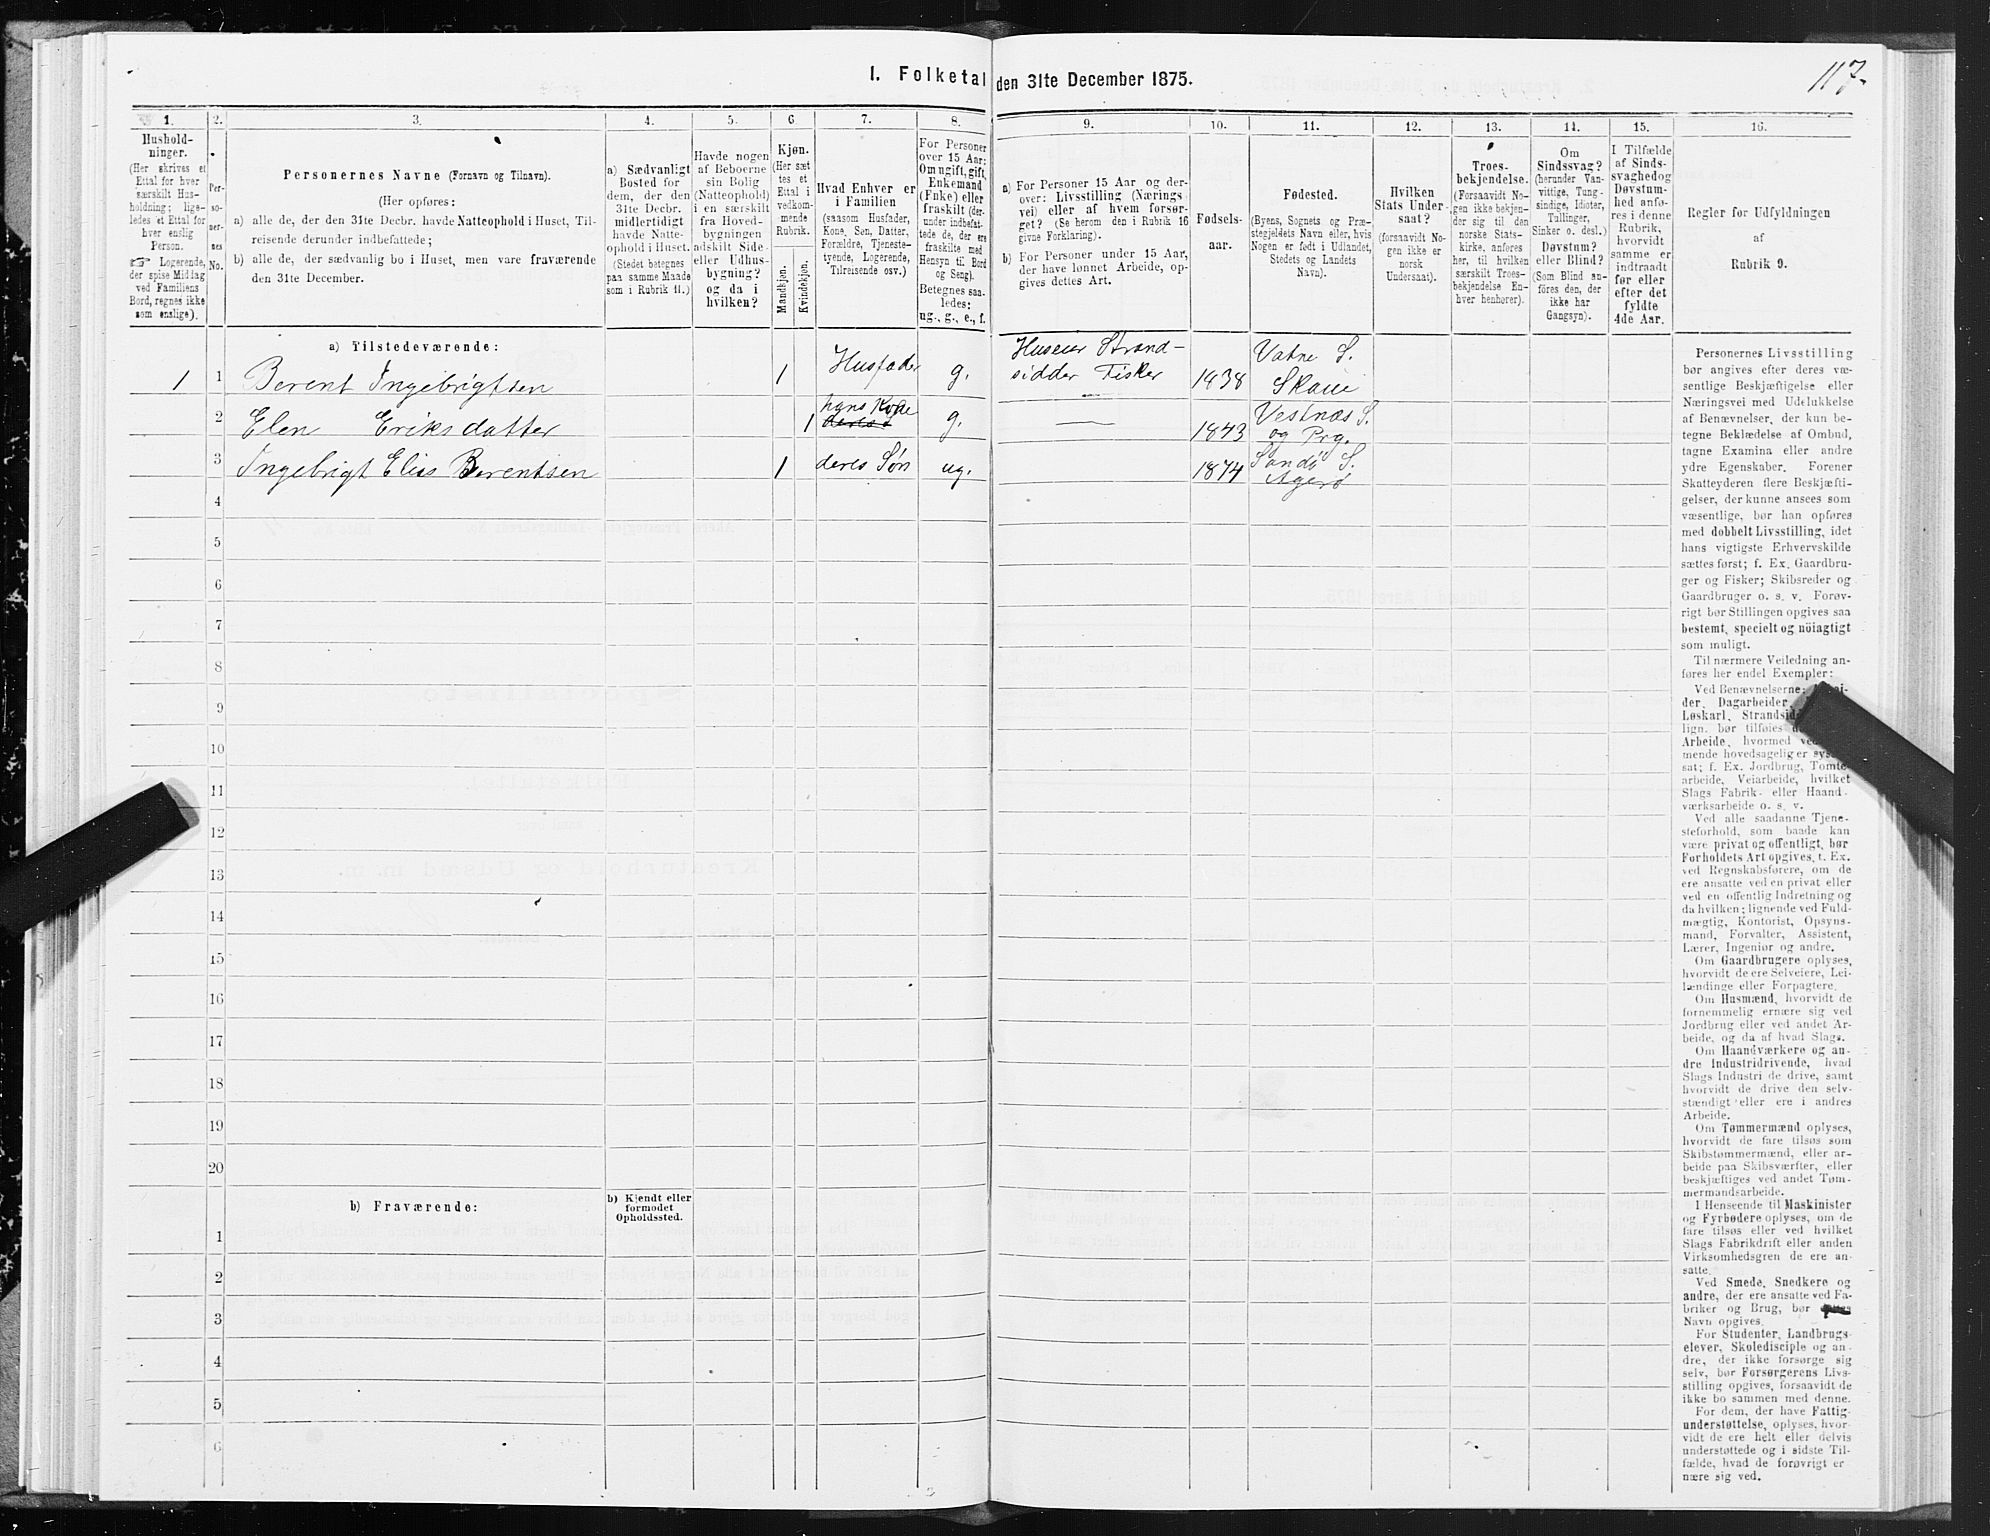 I. Folketal den 31te December 1875.
117.
1.
Hushold-
ninger.
(Her skrives et
Ettal for hver
særskilt Hus-
holdning; lige-
ledes et Ettal for
hver enslig
Person.
☞ Logerende,
der spise Middag
ved Familiens
Bord, regnes ikke
som enslige).
2.
Per-
so-
ner-
nes
No.
3.
Personernes Navne (Fornavn og Tilnavn).
(Her opføres:
a) alle de, der den 31te Decbr. havde Natteophold i Huset, Til-
reisende derunder indbefattede;
b) alle de, der sædvanlig bo i Huset, men vare fraværende
den 31te December.
4.
a) Sædvanligt
Bosted for
dem, der den
31te Decbr.
midlertidigt
havde Natte-
ophold i Huset.
(Stedet betegnes
paa samme Maade
som i Rubrik 11.)
5.
Havde nogen
af Beboerne
sin Bolig
(Natteophold)
i en særskilt
fra Hoved-
bygningen
adskilt Side-
eller Udhus-
bygning?
og da i
hvilken?
6
Kjøn.
(Her sæt
tes et
Ettal i
vedkom-
mende
Rubrik.
Mandkjøn.
Kvindekjøn.
7.
Hvad Enhver er
i Familien
(saasom Husfader,
Kone, Søn, Datter,
Forældre, Tjeneste-
tyende, Logerende,
Tilreisende osv.)
8.
For Personer
over 15 Aar:
Om ugift, gift,
Enkemand
(Enke) eller
fraskilt (der-
under indbefat-
tede de, der ere
fraskilte med
Hensyn til Bord
og Seng).
Betegnes saa-
ledes:
ug., g., e., f.
9.
a) For Personer 15 Aar og der-
over: Livsstilling (Nærings
vei) eller af hvem forsør-
get? (Se herom den i Rubrik 16
givne Forklaring).
b) For Personer under 15 Aar,
der have lønnet Arbeide, op-
gives dettes Art.
10.
Fødsels-
aar.
11.
Fødested.
(Byens, Sognets og Præ-
stegjeldets Navn eller, hvis
Nogen er født i Udlandet,
Stedets og Landets
Navn).
12.
Hvilken
Stats Under-
saat?
(forsaavidt No-
gen ikke er
norsk
Undersaat).
13.
Troes-
bekjendelse.
(Forsaavidt No-
gen ikke bekjen-
der sig til den
norske Stats-
kirke, anføres
her, til hvilken
særskilt Troes-
bekjendelse En-
hver henhører).
14.
Om
Sindssvag?
(herunder Van-
vittige, Tung-
sindige, Idioter,
Tullinger,
Sinker o. desl.)
Døvstum?
eller Blind?
(Som Blind an-
føres den, der
ikke har
Gangsyn).
15.
I Tilfælde
af Sinds-
svaghedog
Døvstum-
hed anfø-
res i denne
Rubrik,
hvorvidt
samme er
indtraadt
før eller
efter det
fyldte
4de Aar.
16.
Regler for Udfyldningen
af
Rubrik 9.
a) Tilstedeværende:
1 1 Berent Ingebrigtsen 1 Husfader g. Huseier Strand-
sidder Fisker 1838 Vatne S.
Skaui
2 Elen Eriksdatter 1 hans Kone g. — 1843 Vestnæs S.
og Prg.
3 Ingebrigt Elias Berentsen 1 deres Søn ug. 1874 Sandø S.
Agerø
4
5
6
7
8
9
10
11
12
13
14
15
16
17
18
19
20
b) Fraværende:
b) Kjendt eller
formodet
Opholdssted.
1
2
3
4
5
6
Personernes Livsstilling
bør angives efter deres væ-
sentlige Beskjæftigelse eller
Næringsvei med Udelukkelse
af Benævnelser, der kun be-
tegne Beklædelse af Ombud,
tagne Examina eller andre
ydre Egenskaber. Forener
Skatteyderen flere Beskjæfti-
gelser, der kunne ansees som
væsentlige, bør han opføres
med dobbelt Livsstilling, idet
hans vigtigste Erhvervskilde
sættes først; f. Ex. Gaardbru-
ger og Fisker; Skibsreder og
Gaardbruger o. s. v. Forøv-
rigt bør Stillingen opgives saa
bestemt, specielt og nöiagtigt
som muligt.
Til nærmere Veiledning an-
føres her endel Exempler:
Ved Benævnelserne:
der, Dagarbeider,
Løskarl, Strandsid
lign. bør tilføies
Arbeide, hvormed
mende hovedsagelig er
sat; f. Ex. Jordbrug, Tomte-
arbeide, Veiarbeide, hvilket
Slags Fabrik- eller Haand-
værksarbeide o. s. v.
Ved alle saadanne Tjene-
steforhold, som baade kan
være privat og offentligt, bør
Forholdets Art opgives, t. Ex.
ved Regnskabsførere, om de
ere ansatte ved en privat eller
ved en offentlig Indretning og
da hvilken; lignende ved Fuld-
mægtig, Kontorist, Opsyns-
mand, Forvalter, Assistent,
Lærer, Ingeniør og andre.
Om Gaardbrugere oplyses,
hvorvidt de ere Selveiere, Lei-
lændinge eller Forpagtere.
Om Husmænd, hvorvidt de
fornemmelig ernære sig ved
Jordbrug eller ved andet Ar-
beide, og da af hvad Slags.
Om Haandværkere og an-
dre Industridrivende, hvad
Slags Industri de drive, samt
hvorvidt de drive den selv-
stændigt eller ere i andres
Arbeide.
Om Tømmermænd oplyses,
hvorvidt de fare tilsøs som
Skibstømmermænd, eller ar-
beide paa Skibsværfter, eller
beskjæftiges ved andet Tøm-
mermandsarbeide.
I Henseende til Maskinister
og Fyrbødere oplyses, om de
fare tilsøs eller ved hvilket
Slags Fabrikdrift eller anden
Virksomhedsgren de ere an-
satte.
Ved Smede, Snedkere og
andre, der ere ansatte ved Fa-
briker og Brug, bør
Navn opgives.
For Studenter, Landbrugs-
elever, Skoledisciple og an-
dre, der ikke forsørge sig
selv, bør Forsørgerens Livs-
stilling opgives, forsaavidt de
ikke bo sammen med denne.
For dem, der have Fattig-
understøttelse, oplyses, hvor-
vidt de ere helt eller delvis
understøttede og i sidste Til-
fælde, hvad de forøvrigt er-
nære sig ved.